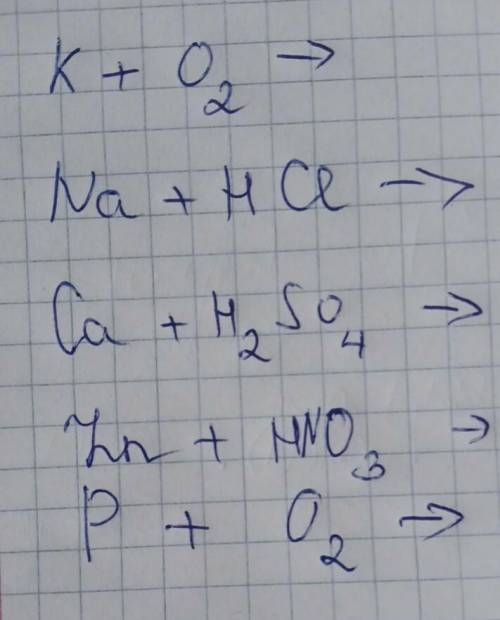 K + O₂ →
Na + HCl →
Ca + H₂SO₄ →
Zn + HNO₃ →
P + O₂ →